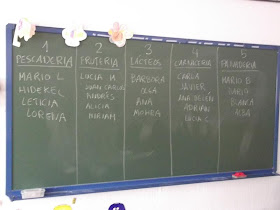 1
PESCADERIA
MARIO L.
HIDEKEL
LETICIA
LORENA
2
FRUTERIA
LUCIA M
JUAN CARLOS
ANDRÉS
ALICIA
MIRIAM
3
LÁCTEOS
BARBARA
OLGA
ANA
4
CARNICERIA
CARLA
JAVIER
ANA BELÉN
ADRIÁN
LUCIA C.
5
PANADERIA
MARIO B.
DARIO
BLANCA
ALBA